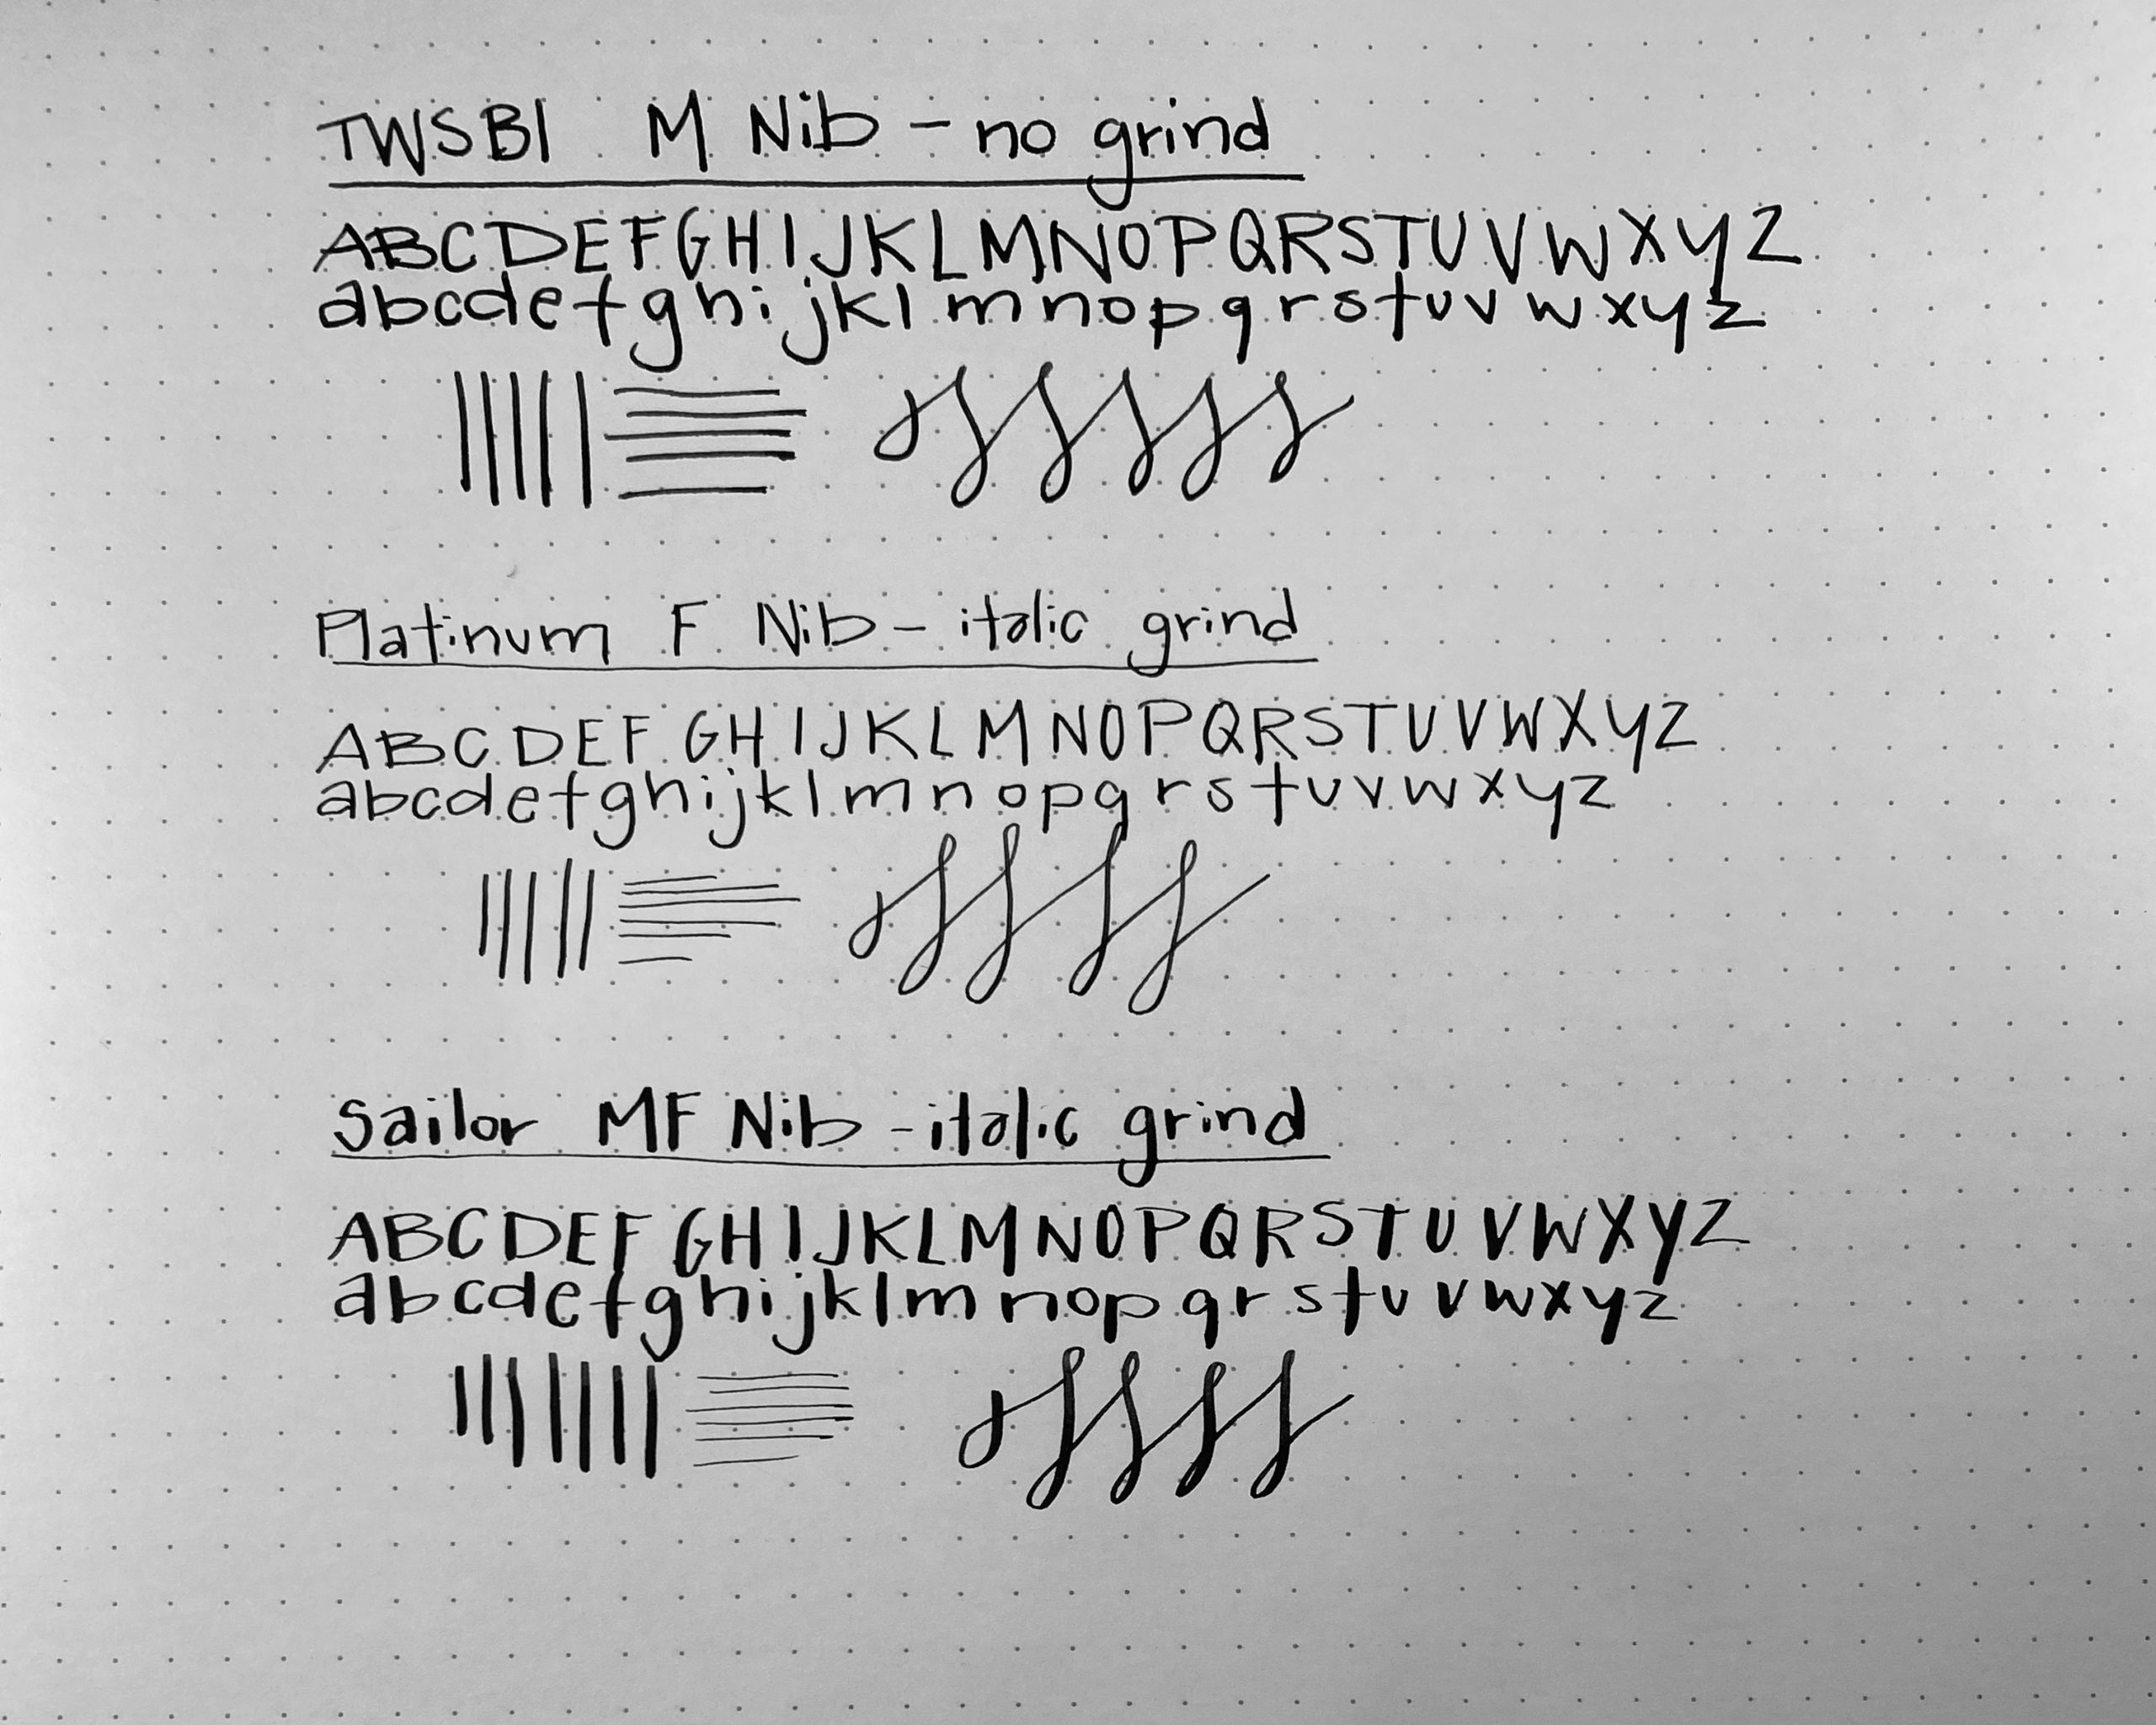 TWSBI M Nib - no grind
ABCDEFGHIJKLMNOPQRSTUVWXYZ
abcdefghijklmnopqrstuvwxyz
Platinum F Nib - italic grind
ABCDEFGHIJKLMNOPQRSTUVWXYZ
abcdefghijklmnopqrstuvwxyz
Sailor MF Nib - italic grind
ABCDEFGHIJKLMNOPQRSTUVWXYZ
abcdefghijklmnopqrstuvwxyz